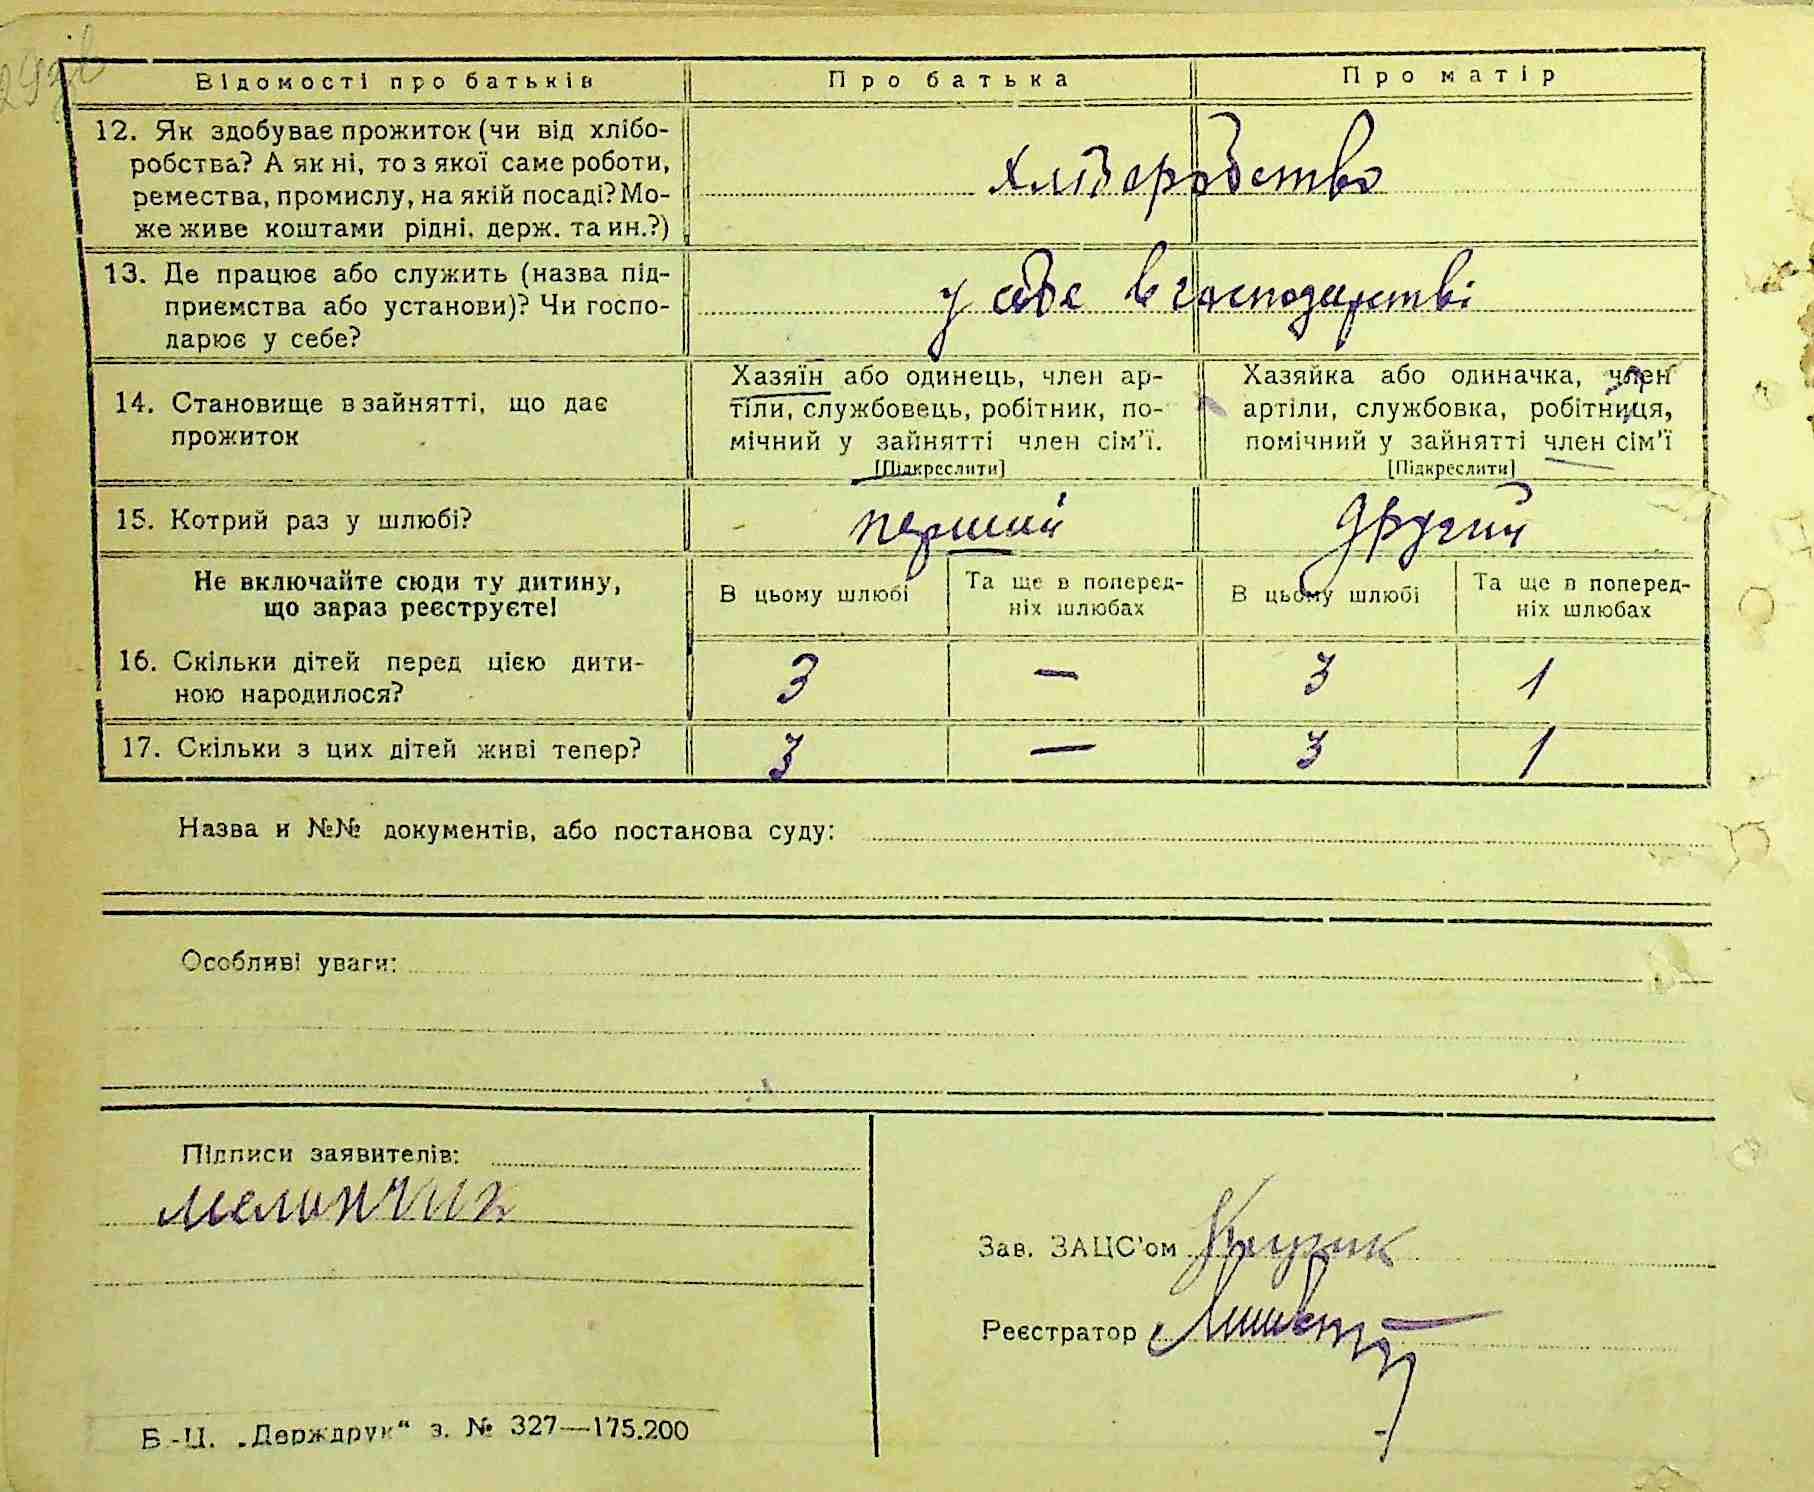 Відомості про батьків Про батька Про матір
12. Як здобуває прожиток (чи від хлібо-
робства? А як ні, то з якої саме роботи,
ремества, промислу, на якій посаді? Мо-
же живе коштами рідні, держ. та ин.?)
хліборобство
13. Де працює або служить (назва під-
приємства або установи)? Чи госпо-
дарює у себе?
у себе в господарстві
14. Становище в зайнятті, що дає
прожиток
Хазяїн або одинець, член ар-
тіли, службовець, робітник, по-
мічний у зайнятті член сім'ї.
[Підкреслити]
Хазяйка або одиначка, член
артіли, службовка, робітниця,
помічний у зайнятті член сім'ї
[Підкреслити]
15. Котрий раз у шлюбі? перший другий
Не включайте сюди ту дитину,
що зараз реєструєте!
В цьому шлюбі
Та ще в поперед-
ніх шлюбах
В цьому шлюбі
Та ще в поперед-
ніх шлюбах
16. Скільки дітей перед цією дити-
ною народилося?
3 — 3 1
17. Скільки з цих дітей живі тепер? 3 — 3 1
Назва и №№ документів, або постанова суду:
Особливі уваги:
Підписи заявителів:
Зав. ЗАЦС'ом
Реєстратор
Б.-Ц. „Держдрук“ з. № 327—175.200